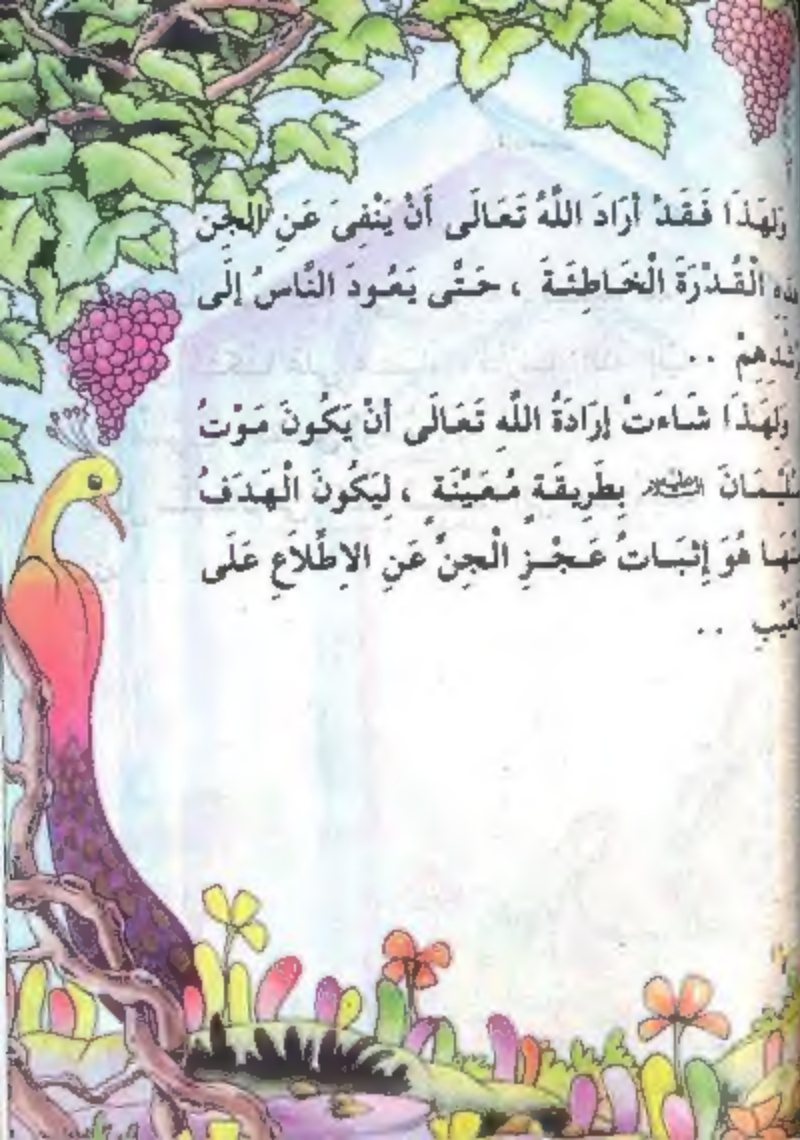 وَلِهَذَا فَقَدْ أَرَادَ اللَّهُ تَعَالَى أَنْ يَنْفِىَ عَنِ الْجِنِّ
هَذِهِ الْقُدْرَةَ الْخَاطِئَةَ ، حَتَّى يَعُودَ النَّاسُ إِلَى
رُشْدِهِمْ ..
وَلِهَذَا شَاءَتْ إِرَادَةُ اللَّهِ تَعَالَى أَنْ يَكُونَ مَوْتُ
سُلَيْمَانَ عليه السلام بِطَرِيقَةٍ مُعَيَّنَةٍ ، لِيَكُونَ الْهَدَفُ
مِنْهَا هُوَ إِثْبَاتُ عَجْزِ الْجِنِّ عَنِ الاِطِّلاَعِ عَلَى
الْغَيْبِ ..